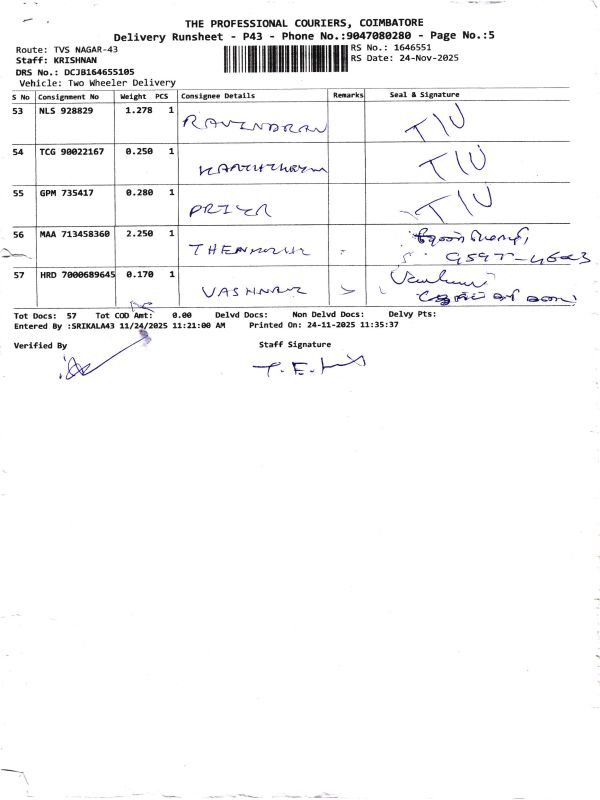 THE PROFESSIONAL COURIERS, COIMBATORE
Delivery Runsheet - P43 - Phone No.:9047080280 - Page No.:5
Route: TVS NAGAR-43 RS No.: 1646551
Staff: KRISHNAN RS Date: 24-Nov-2025
DRS No.: DCJB164655105
Vehicle: Two Wheeler Delivery
S No Consignment No Weight PCS Consignee Details Remarks Seal & Signature
53 NLS 928829 1.278 1 RAVINDRAN T/U
54 TCG 90022167 0.250 1 T/U
55 GPM 735417 0.280 1 PRIYA T/U
56 MAA 713458360 2.250 1
57 HRD 7000689645 0.170 1
Tot Docs: 57 Tot COD Amt: 0.00 Delvd Docs: Non Delvd Docs: Delvy Pts:
Entered By :SRIKALA43 11/24/2025 11:21:00 AM Printed On: 24-11-2025 11:35:37
Verified By Staff Signature